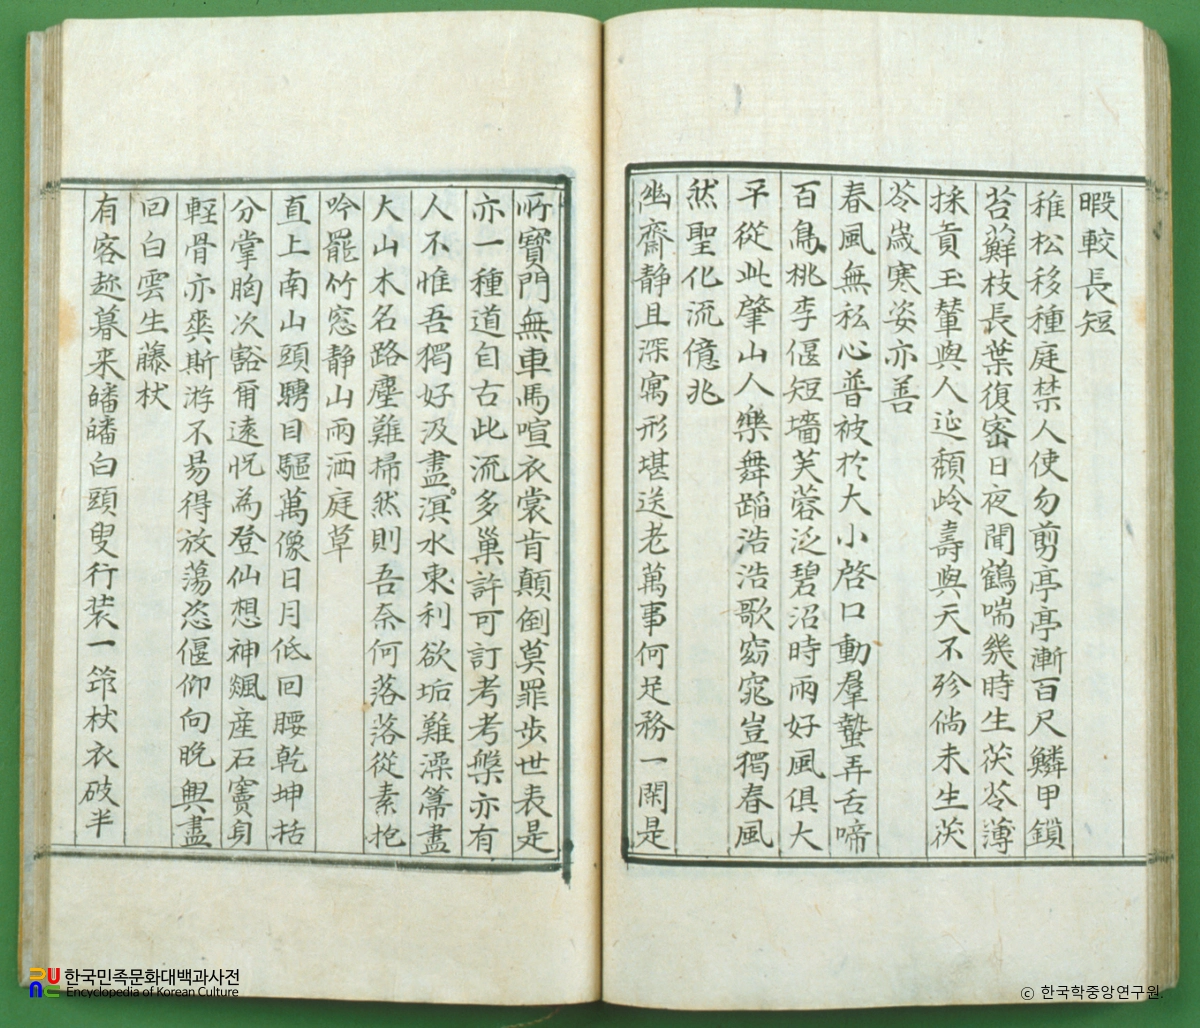 暇較長短
稚松移種庭禁人使勿剪亭亭漸百尺鱗甲鎖
苔蘚枝長葉復密日夜聞鶴喘幾時生茯苓薄
採貢玉輦與人延頹岭壽與天不殄倘未生茯
苓歲寒姿亦善
春風無私心普被於大小啓口動羣蟄弄舌啼
百鳥桃李偃短墻芙蓉泛碧沼時雨好風俱大
平從此肇山人樂舞蹈浩浩歌窈窕豈獨春風
然聖化流億兆
幽齋静且深寓形堪送老萬事何足務一閑是
所寶門無車馬喧衣裳肯顛倒莫罪步世表是
亦一種道自古此流多巢許可訂考考槃亦有
人不惟吾獨好汲盡溟水東利欲垢難澡箒盡
大山木名路塵難掃然則吾奈何落落從素抱
吟罷竹窓静山雨洒庭草
直上南山頭騁目驅萬像日月低回腰乾坤括
分掌胸次豁爾遠怳為登仙想神飆産石竇身
輕骨亦爽斯游不易得放蕩恣偃仰向晚興盡
回白雲生藤杖
有客趂暮来皤皤白頭叟行装一笻杖衣破半
한국민족문화대백과사전
Encyclopedia of Korean Culture
ⓒ 한국학중앙연구원.